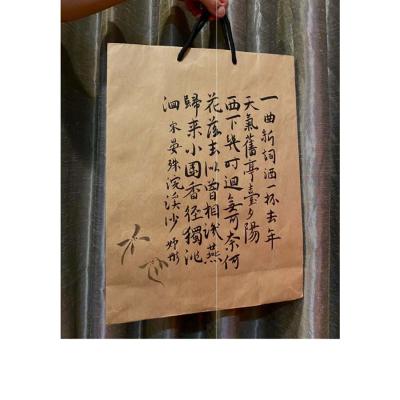 一曲新詞酒一杯去年
天氣舊亭臺夕陽
西下幾時迴無可奈何
花落去似曾相識燕
歸來小園香徑獨徘
徊 宋晏殊浣溪沙